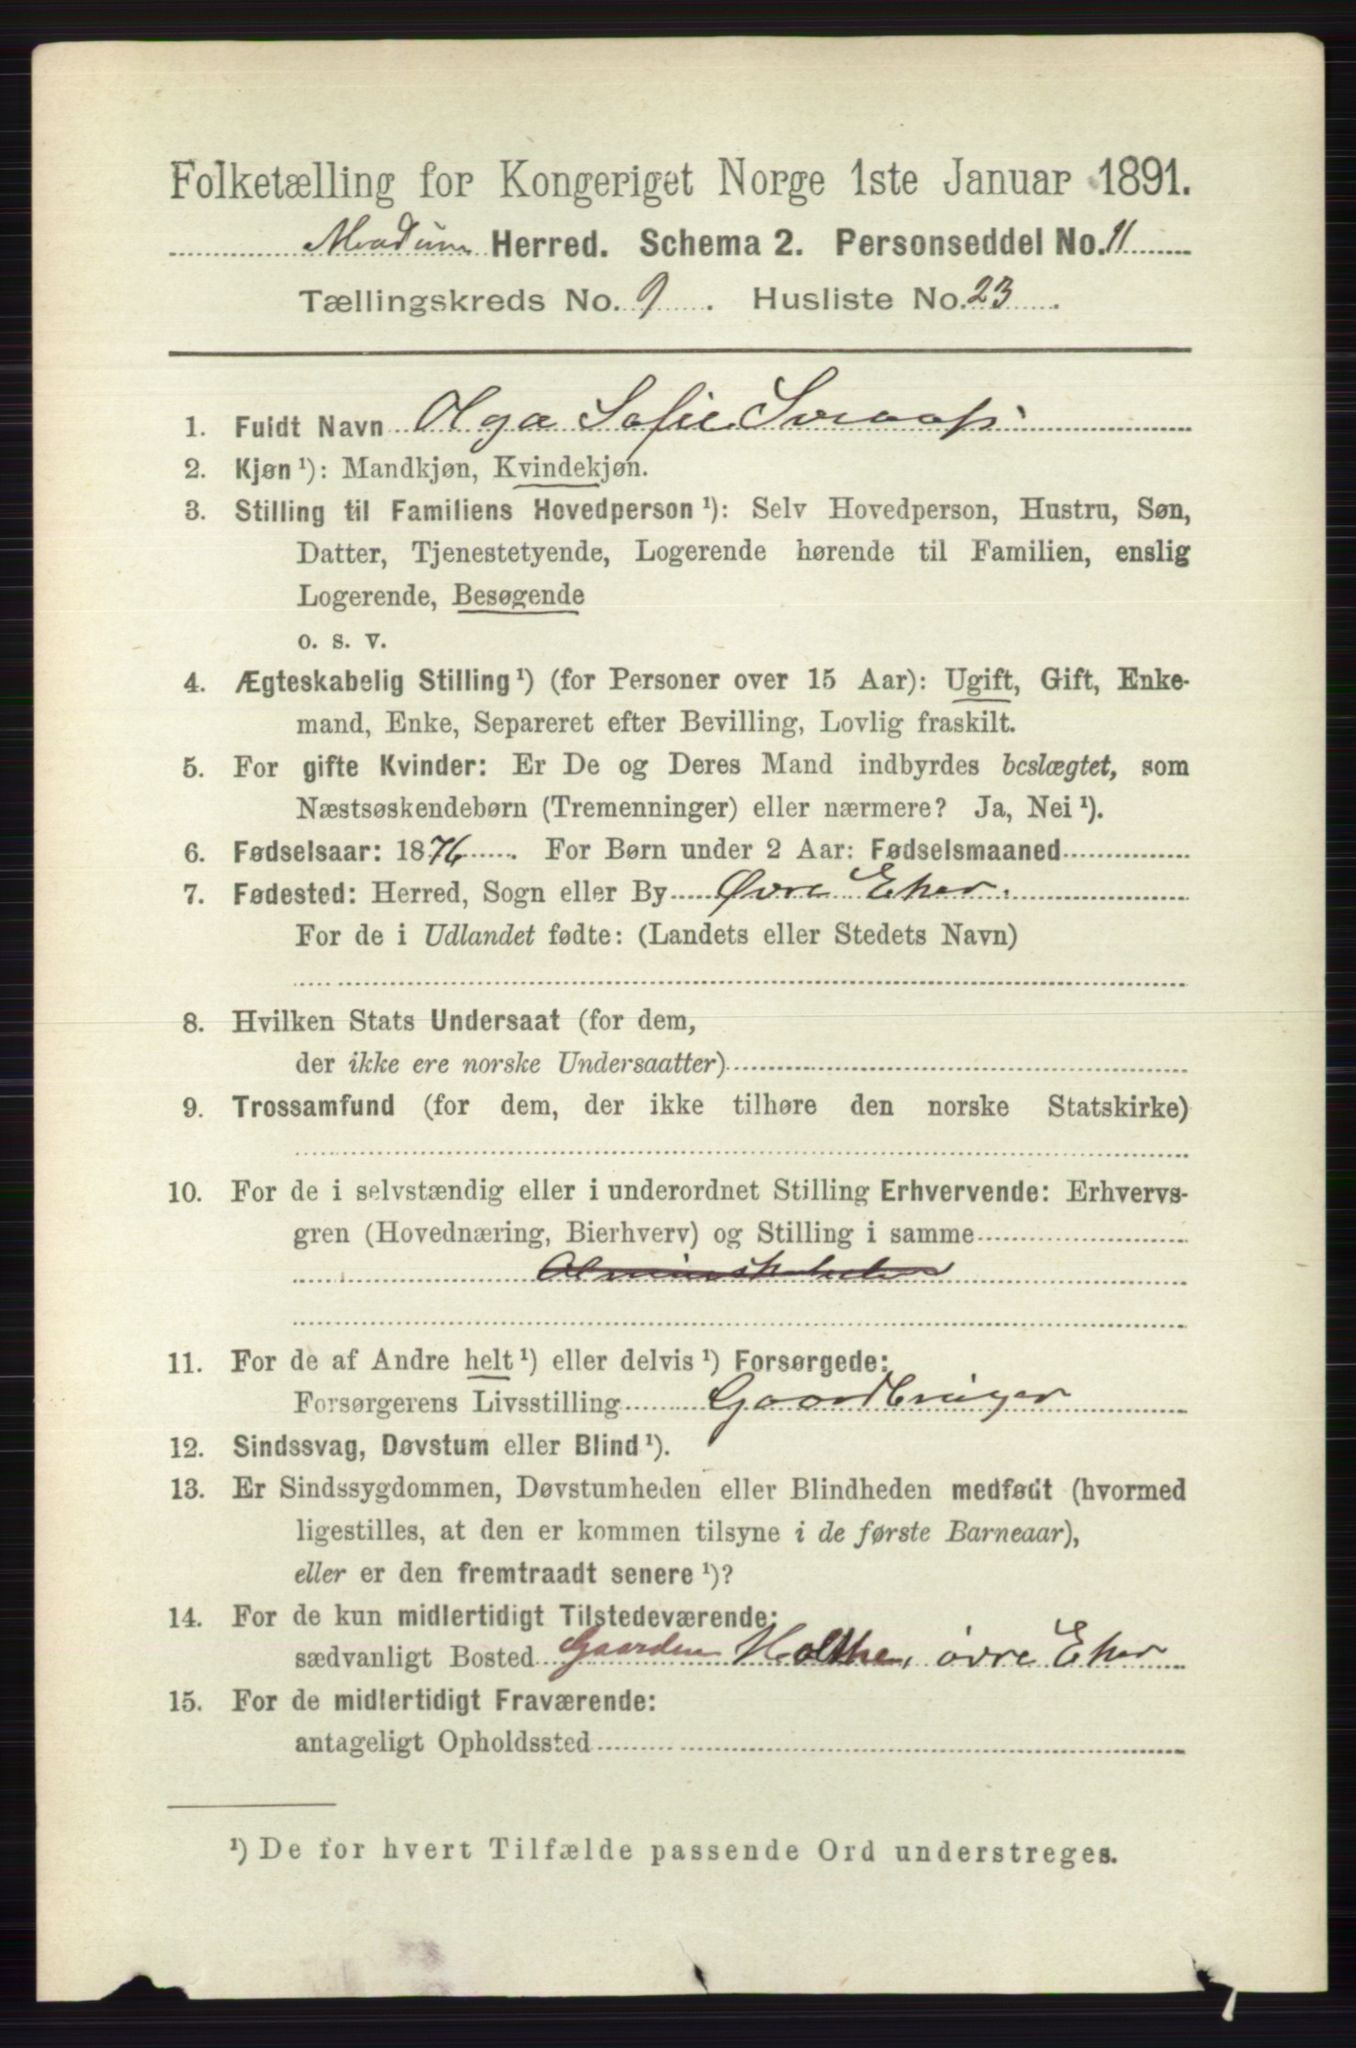 Folketælling for Kongeriget Norge 1ste Januar 1891.
Modum Herred. Schema 2. Personseddel No. 11
Tællingskreds No. 9. Husliste No. 23.
1. Fuldt Navn Olga Sofie
2. Kjøn¹): Mandkjøn, Kvindekjøn.
3. Stilling til Familiens Hovedperson¹): Selv Hovedperson, Hustru, Søn,
Datter, Tjenestetyende, Logerende hørende til Familien, enslig
Logerende, Besøgende
o. s. v.
4. Ægteskabelig Stilling¹) (for Personer over 15 Aar): Ugift, Gift, Enke-
mand, Enke, Separeret efter Bevilling, Lovlig fraskilt.
5. For gifte Kvinder: Er De og Deres Mand indbyrdes beslægtet, som
Næstsøskendebørn (Tremenninger) eller nærmere? Ja, Nei¹).
6. Fødselsaar: 1876. For Børn under 2 Aar: Fødselsmaaned
7. Fødested: Herred, Sogn eller By Øvre Eker.
For de i Udlandet fødte: (Landets eller Stedets Navn)
8. Hvilken Stats Undersaat (for dem,
der ikke ere norske Undersaatter)
9. Trossamfund (for dem, der ikke tilhøre den norske Statskirke)
10. For de i selvstændig eller i underordnet Stilling Erhvervende: Erhvervs-
gren (Hovednæring, Bierhverv) og Stilling i samme
11. For de af Andre helt¹) eller delvis¹) Forsørgede:
Forsørgerens Livsstilling Gaardbruger
12. Sindssvag, Døvstum eller Blind¹).
13. Er Sindssygdommen, Døvstumheden eller Blindheden medfødt (hvormed
ligestilles, at den er kommen tilsyne i de første Barneaar),
eller er den fremtraadt senere¹)?
14. For de kun midlertidigt Tilstedeværende:
sædvanligt Bosted Gaarden Holthe, øvre Eker
15. For de midlertidigt Fraværende:
antageligt Opholdssted
¹) De for hvert Tilfælde passende Ord understreges.